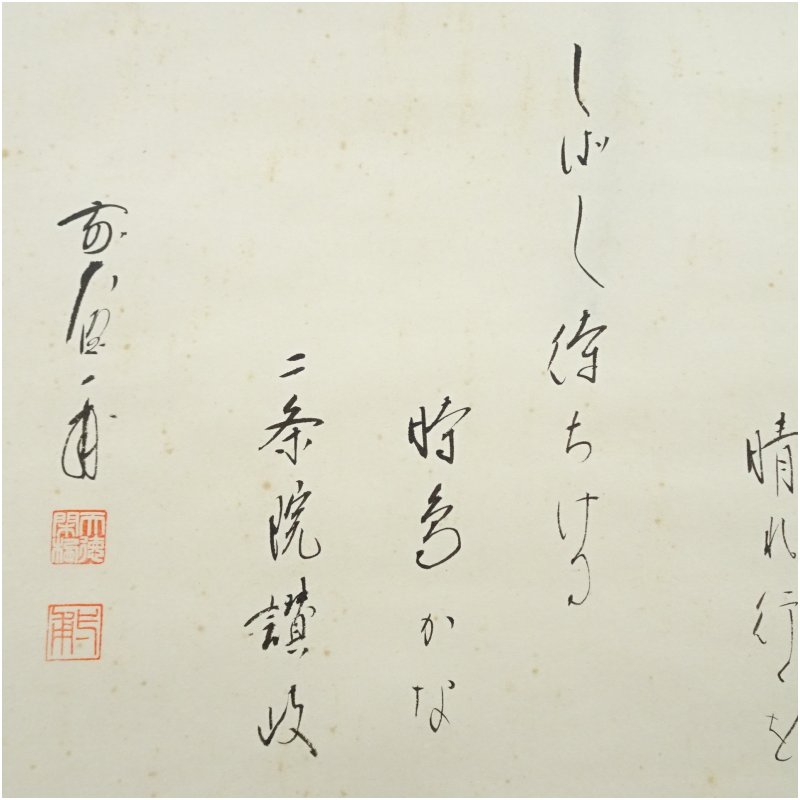 晴れ行くを
しばし待ちける
時鳥かな
二条院讃岐